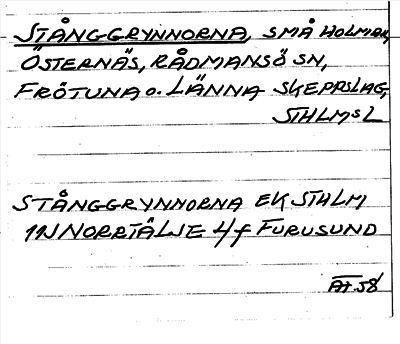 STÅNGGRYNNORNA, SMÅ HOLMAR,
ÖSTERNÄS, RÅDMANSÖ SN,
FRÖTUNA O. LÄNNA SKEPPSLAG,
STHLMS L
STÅNGGRYNNORNA EK STHLM
11N NORRTÄLJE 4/f FURUSUND
AT.58